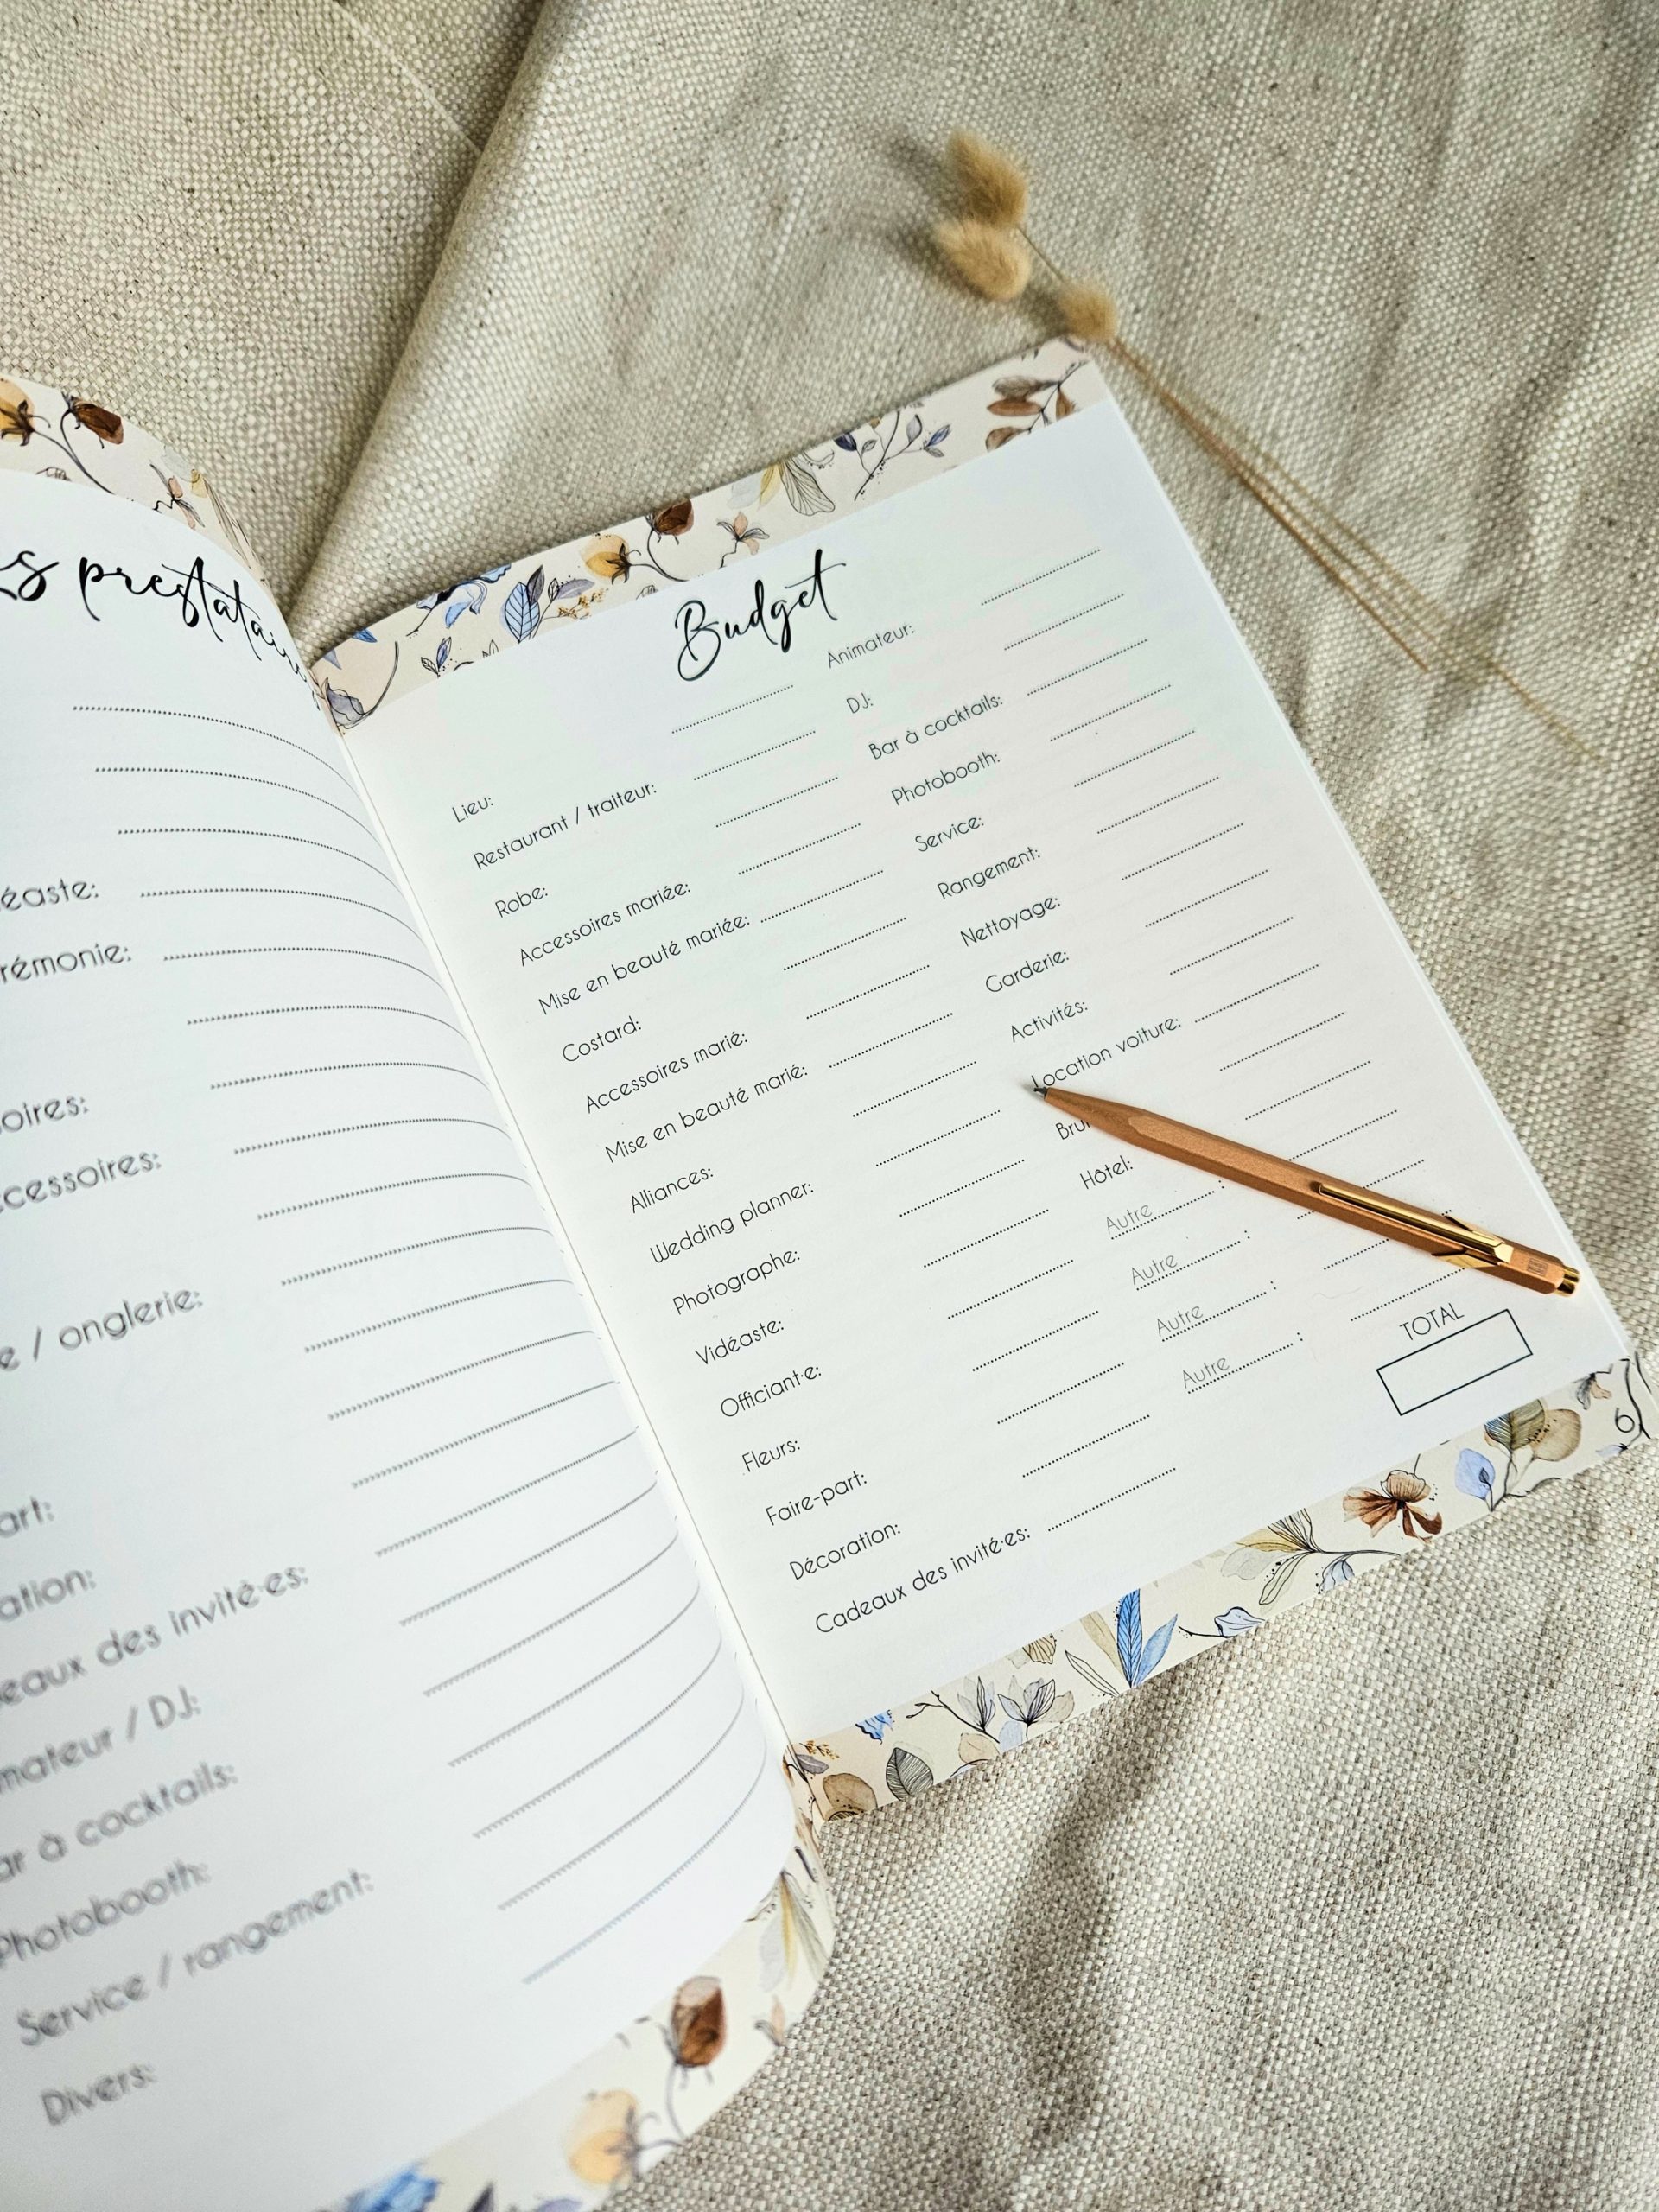 éaste:
rémonie:
oires:
ccessoires:
e / onglerie:
art:
ation:
eaux des invité·es:
mateur / DJ:
ar à cocktails:
Photobooth:
Service / rangement:
Divers:
Budget
Lieu:
Restaurant / traiteur:
Robe:
Accessoires mariée:
Mise en beauté mariée:
Costard:
Accessoires marié:
Mise en beauté marié:
Alliances:
Wedding planner:
Photographe:
Vidéaste:
Officiant·e:
Fleurs:
Faire-part:
Décoration:
Cadeaux des invité·es:
Animateur:
DJ:
Bar à cocktails:
Photobooth:
Service:
Rangement:
Nettoyage:
Garderie:
Activités:
Location voiture:
Bru
Hôtel:
Autre :
Autre :
Autre :
Autre :
TOTAL